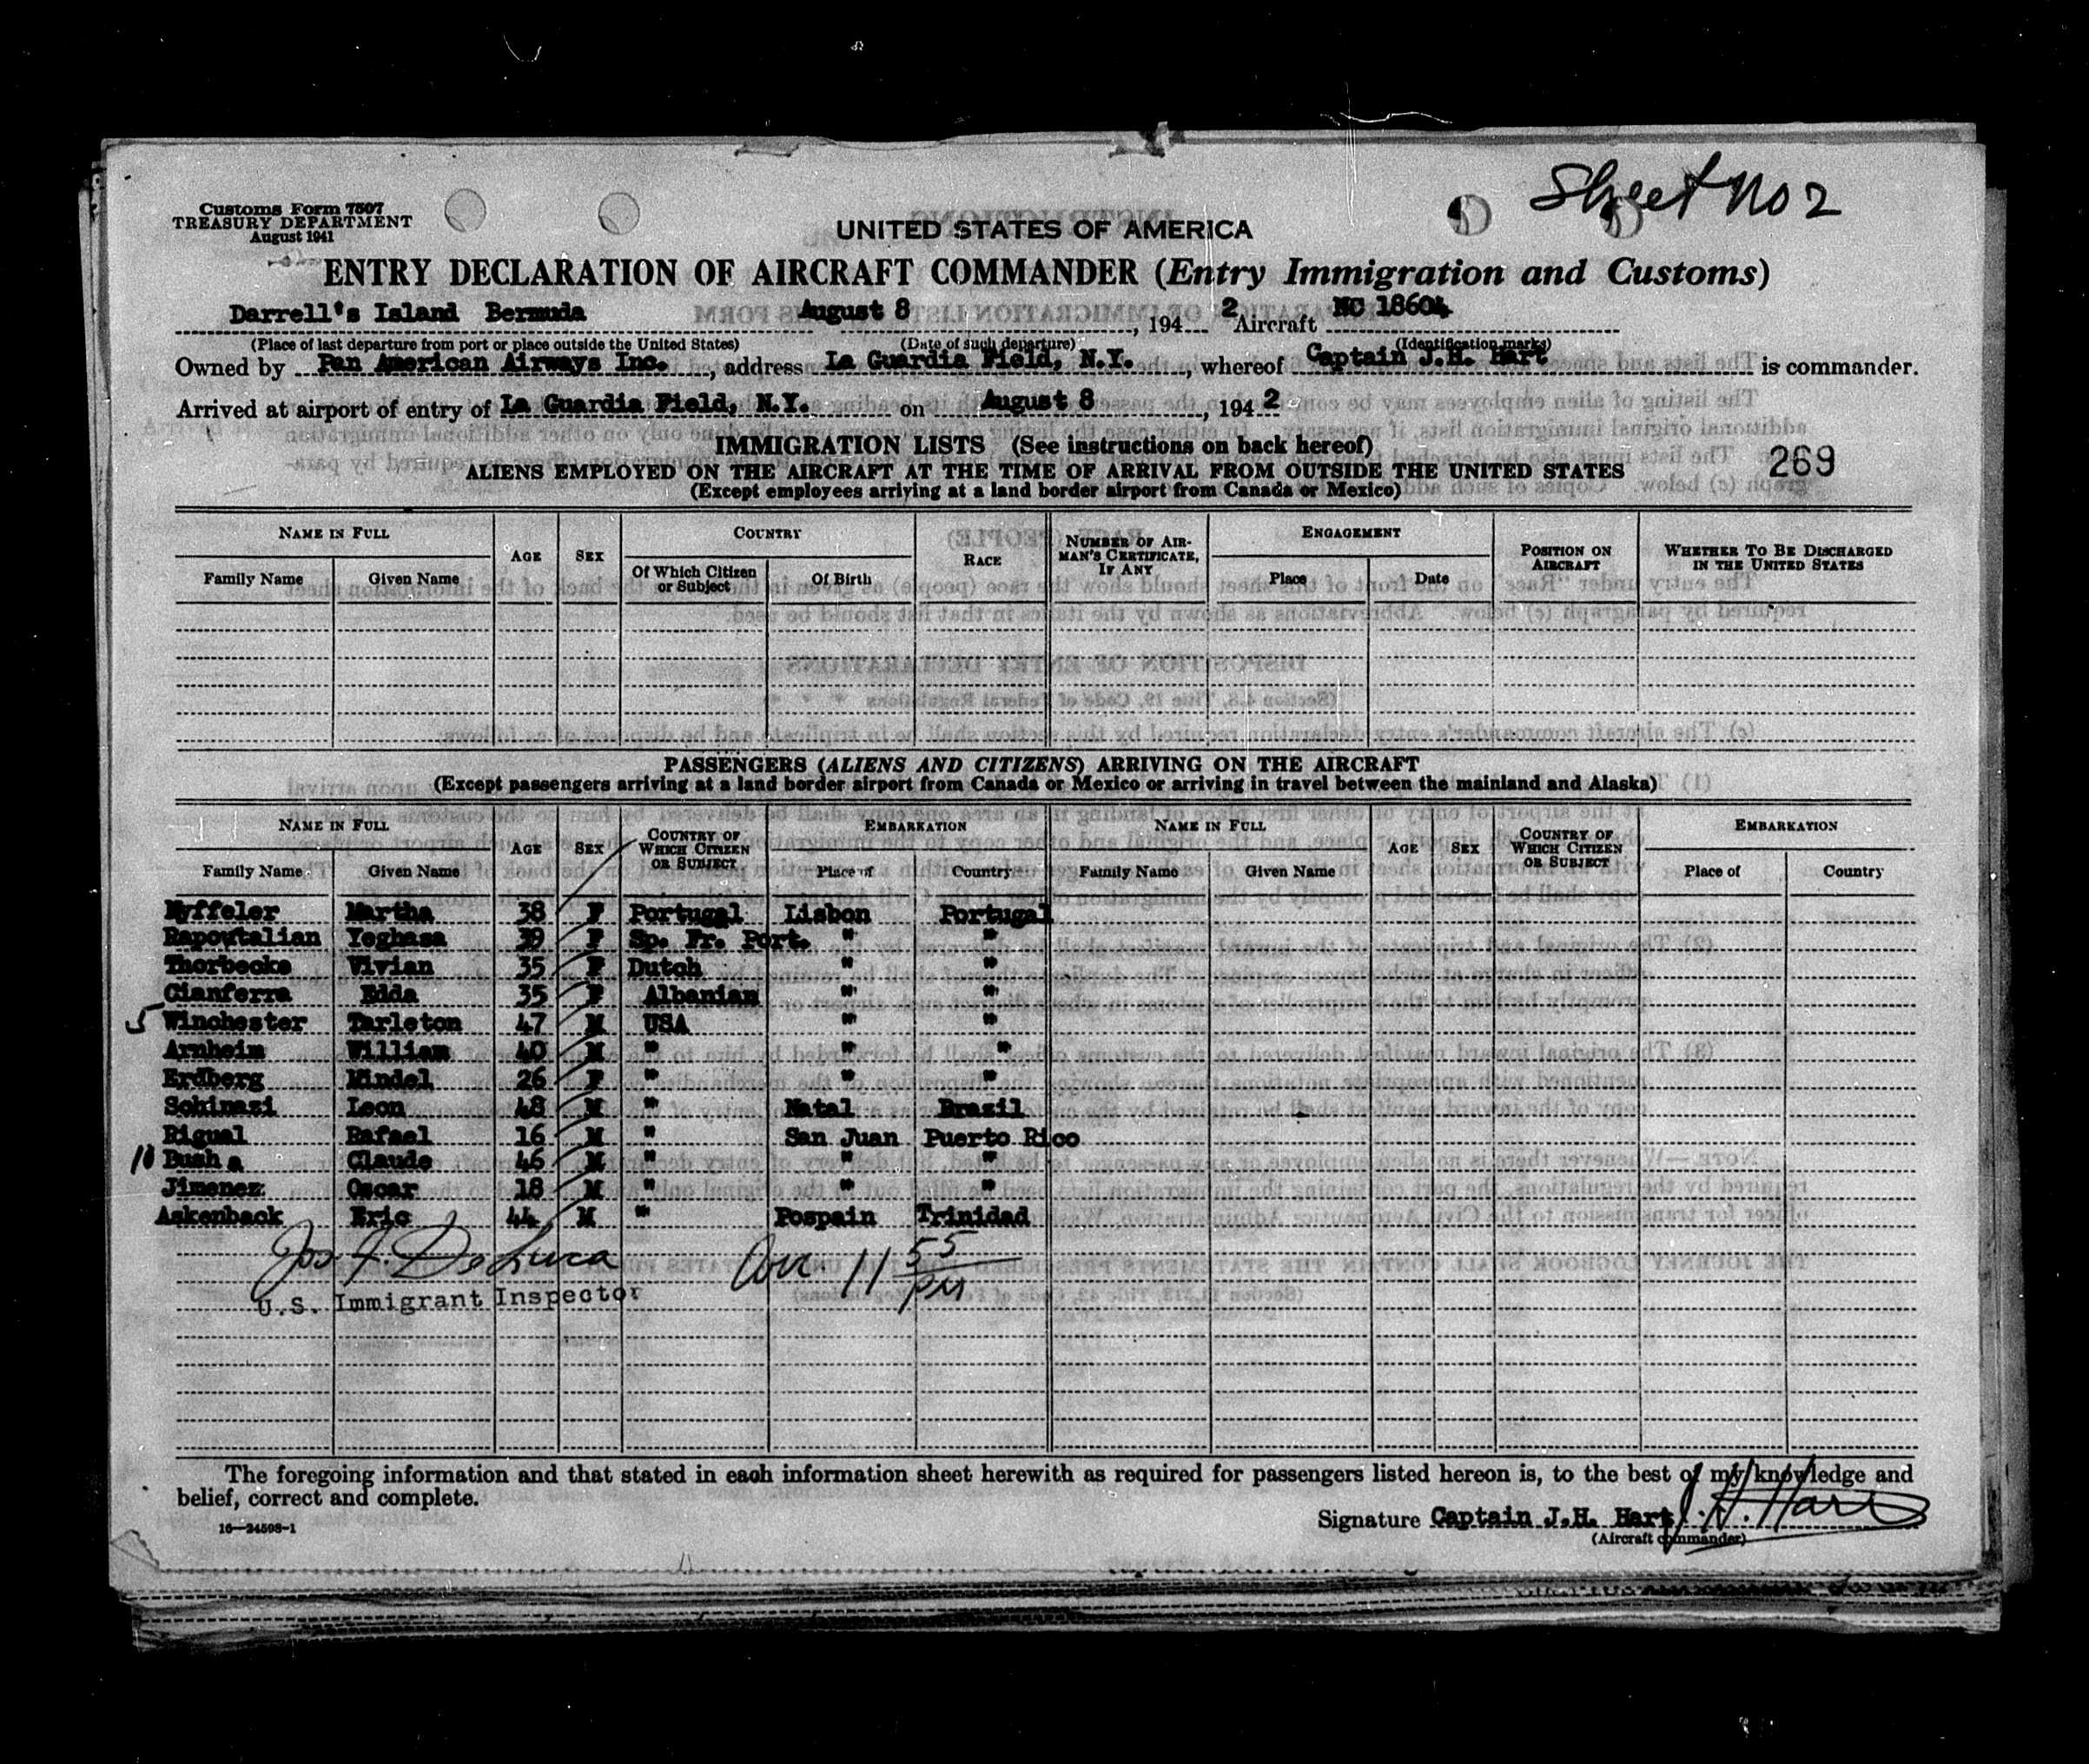 Sheet No 2
Customs Form 7507
TREASURY DEPARTMENT
August 1941
UNITED STATES OF AMERICA
ENTRY DECLARATION OF AIRCRAFT COMMANDER (Entry Immigration and Customs)
Darrell's Island Bermuda August 8, 1942 Aircraft NC 18604
(Place of last departure from port or place outside the United States) (Date of such departure) (Identification marks)
Owned by Pan American Airways Inc., address La Guardia Field, N.Y., whereof Captain J.H. Hart is commander.
Arrived at airport of entry of La Guardia Field, N.Y. on August 8, 1942
IMMIGRATION LISTS (See instructions on back hereof)
ALIENS EMPLOYED ON THE AIRCRAFT AT THE TIME OF ARRIVAL FROM OUTSIDE THE UNITED STATES
269
(Except employees arriving at a land border airport from Canada or Mexico)
NAME IN FULL AGE SEX COUNTRY RACE NUMBER OF AIRMAN'S CERTIFICATE, IF ANY ENGAGEMENT POSITION ON AIRCRAFT WHETHER TO BE DISCHARGED IN THE UNITED STATES
Family Name Given Name Of Which Citizen or Subject Of Birth Place Date
PASSENGERS (ALIENS AND CITIZENS) ARRIVING ON THE AIRCRAFT
(Except passengers arriving at a land border airport from Canada or Mexico or arriving in travel between the mainland and Alaska)
NAME IN FULL AGE SEX COUNTRY OF WHICH CITIZEN OR SUBJECT EMBARKATION NAME IN FULL AGE SEX COUNTRY OF WHICH CITIZEN OR SUBJECT EMBARKATION
Family Name Given Name Place of Country Family Name Given Name Place of Country
Nyffeler Martha 38 F Portugal Lisbon Portugal
Rapoutalian Yeghasa 39 F Sp. Fr. Port. " "
Thorbecke Vivian 35 F Dutch " "
Cianferra Edda 35 F Albanian " "
5 Winchester Tarleton 47 M USA " "
Arnheim William 40 M " " "
Erdberg Mindel 26 F " " "
Schinasi Leon 48 M " Natal Brazil
Rigual Rafael 16 M " San Juan Puerto Rico
10 Bush a Claude 46 M " " "
Jimenez Oscar 18 M " " "
Askenback Eric 44 M " Pospain Trinidad
Jos F. DeLuca Arr 11 55 PM
U.S. Immigrant Inspector
The foregoing information and that stated in each information sheet herewith as required for passengers listed hereon is, to the best of my knowledge and
belief, correct and complete.
Signature Captain J.H. Hart J. H. Hart
16—24598-1
(Aircraft commander)